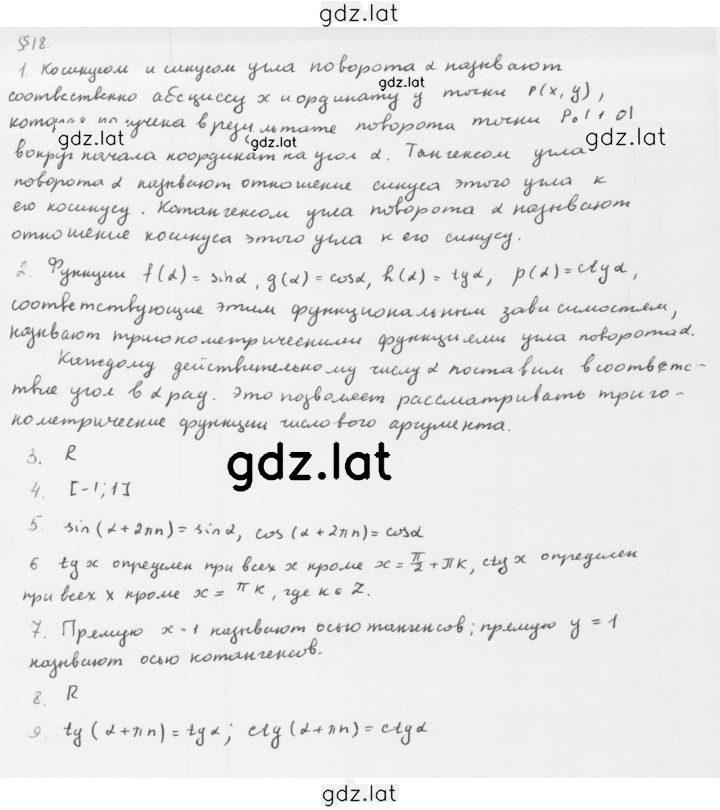 gdz.lat
§18.
1. Косинусом и синусом угла поворота α называют
gdz.lat
соотвественно абсциссу x и ординату y точки P(x, y),
которая получена в результате поворота точки P₀(1 0)
gdz.lat gdz.lat gdz.lat
вокруг начала координат на угол α. Тангенсом угла
поворота α называют отношение синуса этого угла к
его косинусу. Котангенсом угла поворота α называют
отношение косинуса этого угла к его синусу.
2. Функции f(α) = sinα, g(α) = cosα, h(α) = tgα, p(α) = ctgα,
соответствующие этим функциональным зависимостям,
называют тригонометрическими функциями угла поворота α.
Каждому действительному числу α поставим в соответс-
твие угол в α рад. Это позволяет рассматривать триго-
нометрические функции числового аргумента.
3. R
gdz.lat
4. [-1; 1]
5. sin(α+2πn) = sinα, cos(α+2πn) = cosα
6 tg x определен при всех x кроме x = π/2 + πk, ctg x определен
при всех x кроме x = πk, где k ∈ Z.
7. Прямую x - 1 называют осью тангенсов; прямую y = 1
называют осью котангенсов.
8. R
9. tg(α+πn) = tgα; ctg(α+πn) = ctgα
gdz.lat